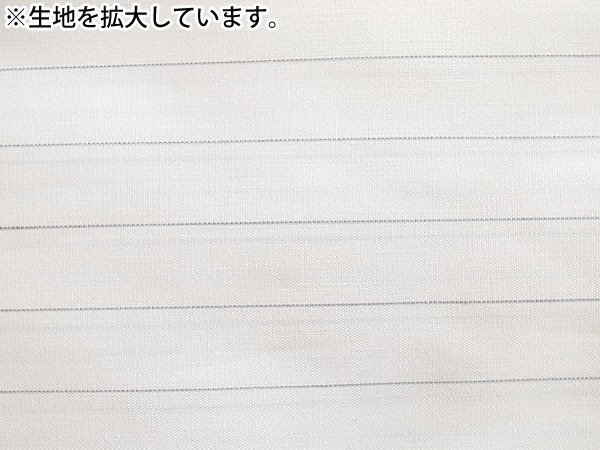 ※生地を拡大しています。